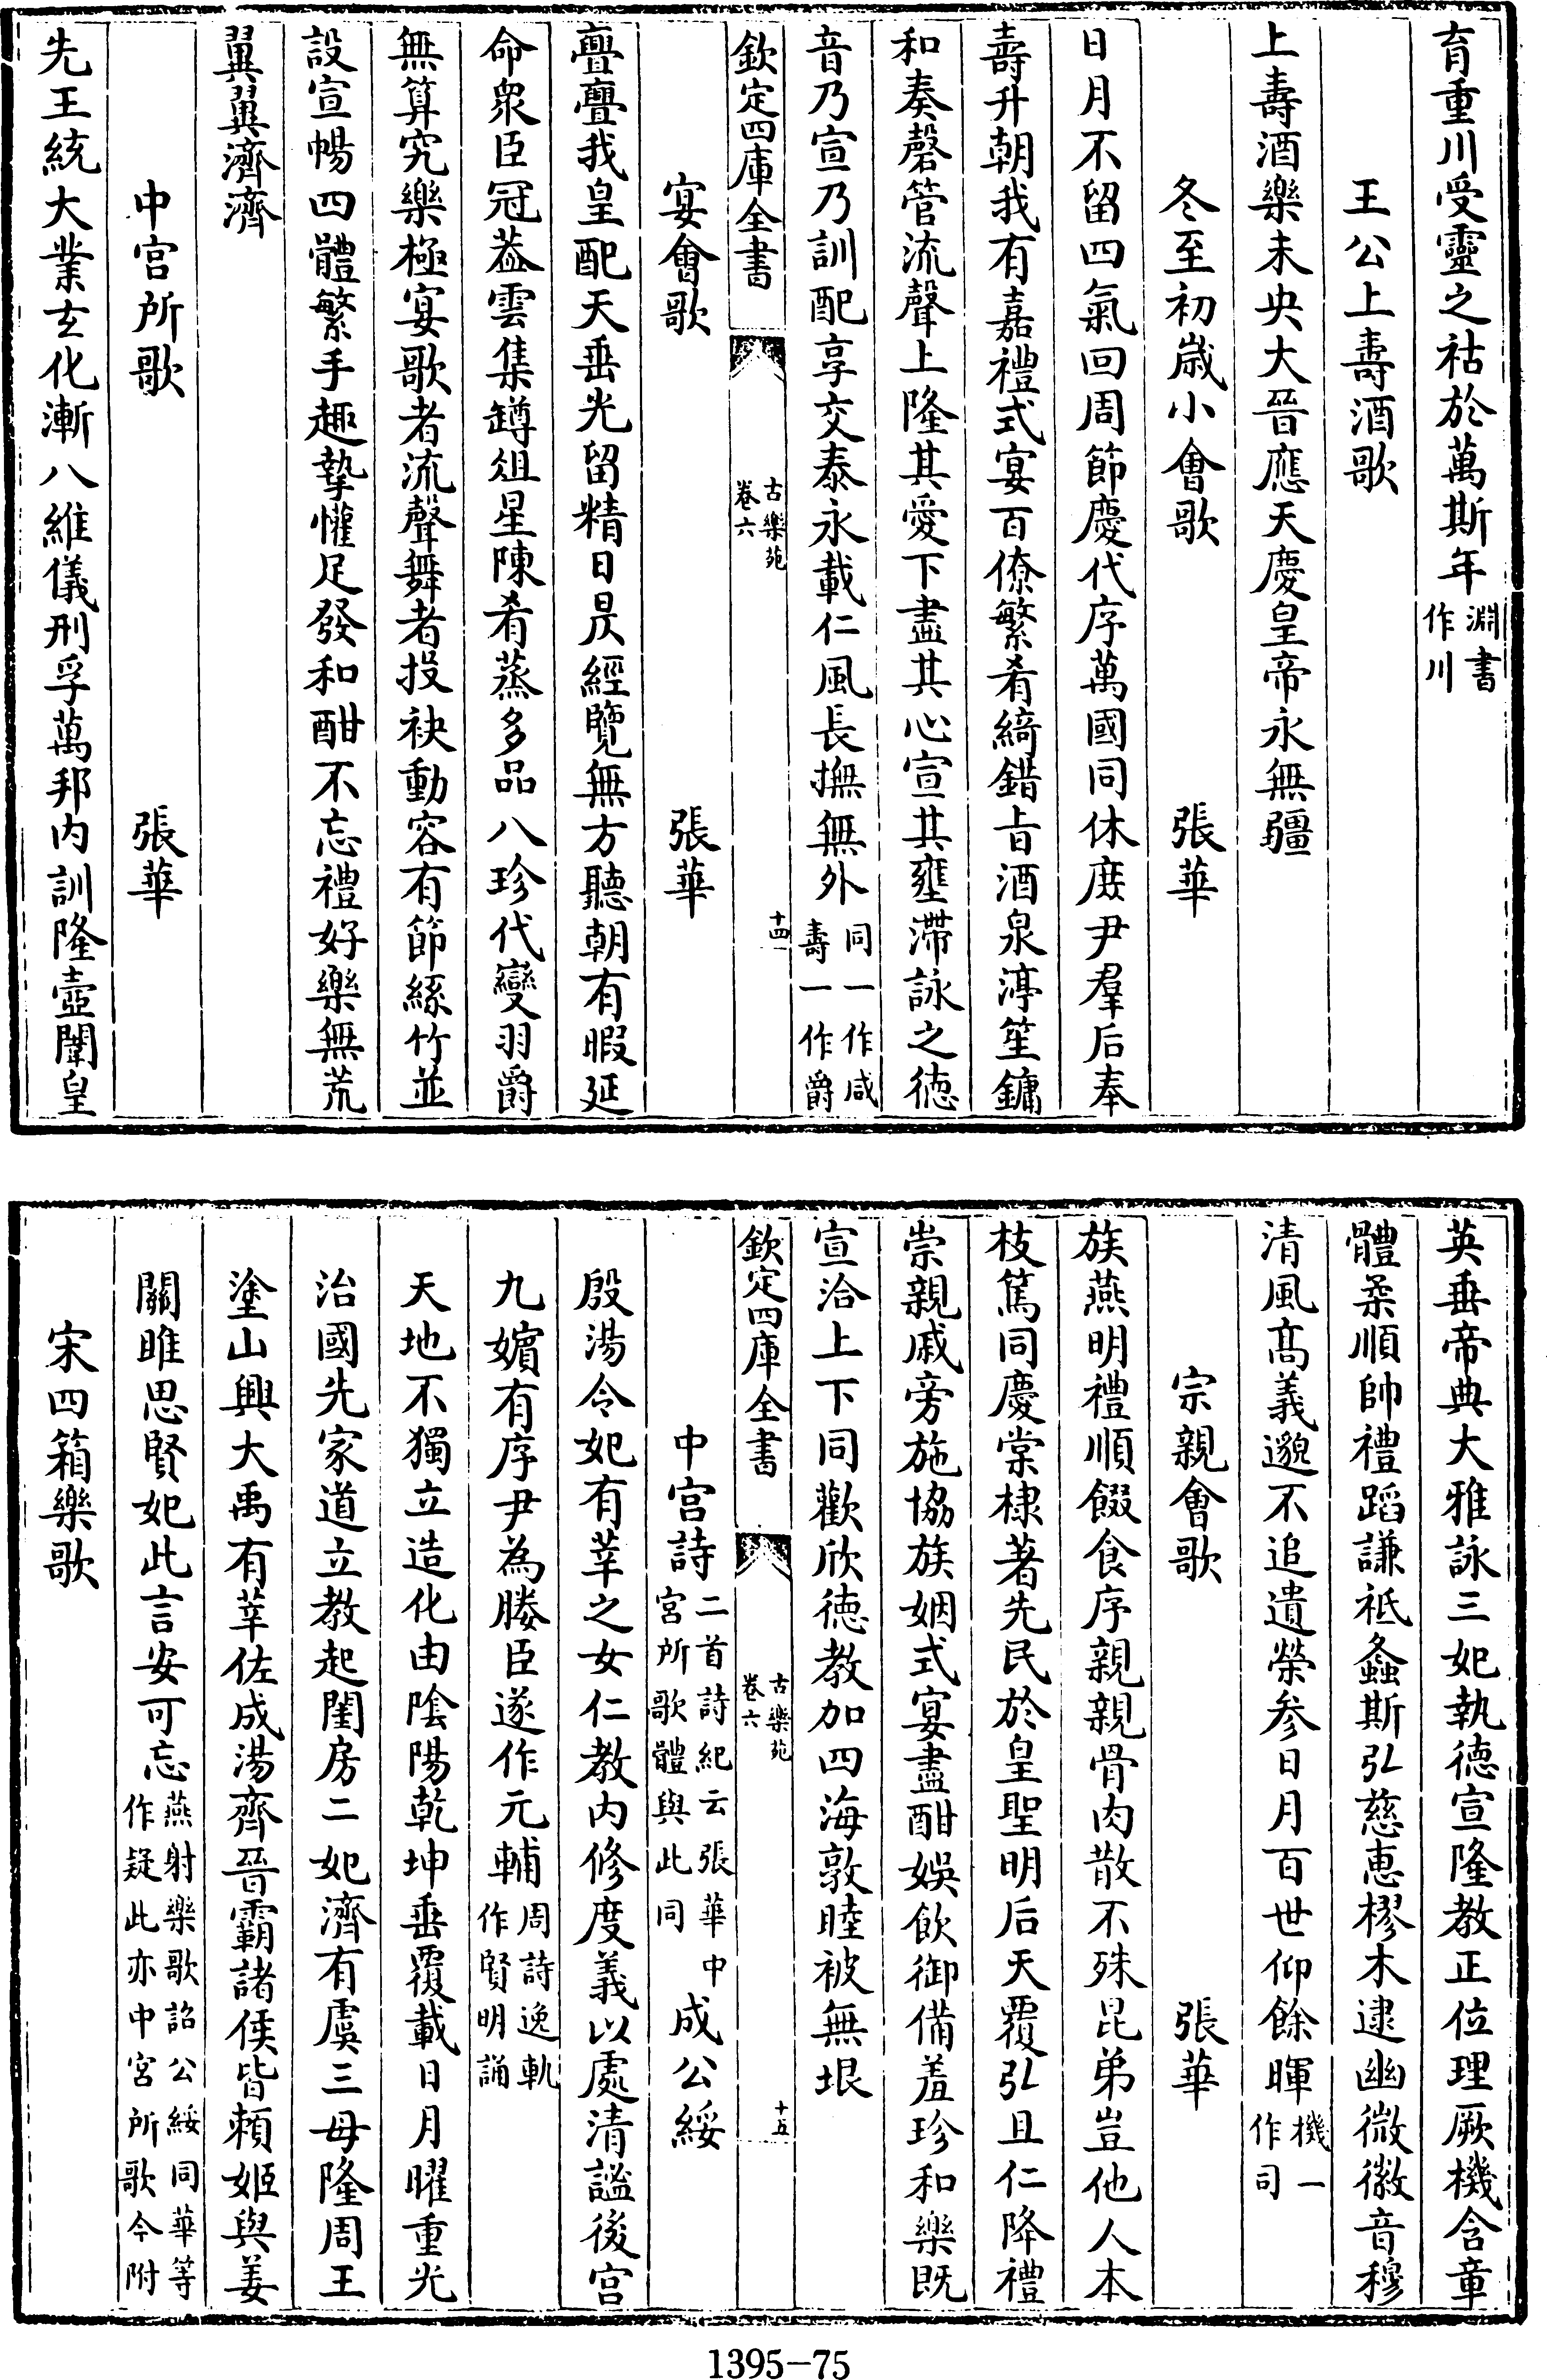 育重川受靈之祜於萬斯年淵書作川
王公上壽酒歌
上壽酒樂未央大晉應天慶皇帝永無疆
冬至初歲小會歌　張華
日月不留四氣回周節慶代序萬國同休庶尹羣后奉
壽升朝我有嘉禮式宴百僚繁肴綺錯旨酒泉渟笙鏞
和奏磬管流聲上隆其愛下盡其心宣其壅滯詠之德
音乃宣乃訓配享交泰永載仁風長撫無外同一作咸壽一作爵
欽定四庫全書　古樂苑卷六　十四
宴會歌　張華
亹亹我皇配天垂光留精日昃經覽無方聽朝有暇延
命衆臣冠葢雲集罇俎星陳肴蒸多品八珍代變羽爵
無算究樂極宴歌者流聲舞者投袂動容有節絲竹並
設宣暢四體繁手趣摯懽足發和酣不忘禮好樂無荒
翼翼濟濟
中宮所歌　張華
先王統大業玄化漸八維儀刑孚萬邦内訓隆壼闈皇
英垂帝典大雅詠三妃執德宣隆教正位理厥機含章
體柔順帥禮蹈謙祗螽斯弘慈惠樛木逮幽微徽音穆
清風髙義邈不追遺榮參日月百世仰餘暉機一作司
宗親會歌　張華
族燕明禮順餟食序親親骨肉散不殊昆弟豈他人本
枝篤同慶棠棣著先民於皇聖明后天覆弘且仁降禮
崇親戚旁施協族姻式宴盡酣娛飲御備羞珍和樂既
宣洽上下同歡欣德教加四海敦睦被無垠
欽定四庫全書　古樂苑卷六　十五
中宮詩二首詩紀云張華中宮所歌體與此同　成公綏
殷湯令妃有莘之女仁教内修度義以處清謐後宮
九嬪有序尹為媵臣遂作元輔周詩逸軌作賢明誦
天地不獨立造化由陰陽乾坤垂覆載日月曜重光
治國先家道立教起閨房二妃濟有虞三母隆周王
塗山興大禹有莘佐成湯齊晉霸諸侯皆賴姬與姜
關雎思賢妃此言安可忘燕射樂歌詔公綏同華等作疑此亦中宮所歌今附
宋四箱樂歌
1395-75